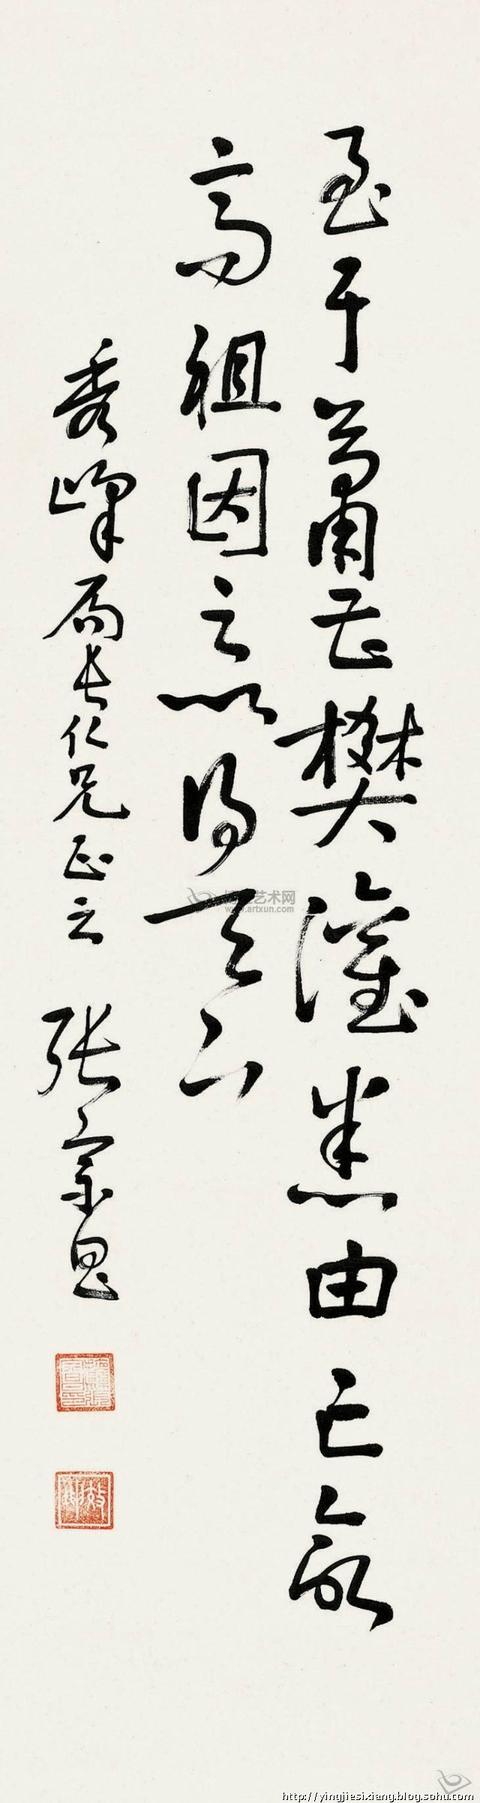 至于蕭曹樊灌悉由亡命
高祖因之以得天下
秀峰局長仁兄正之 張宗昌
艺术网
www.artxun.com
http://yingjiesixiang.blog.sohu.com